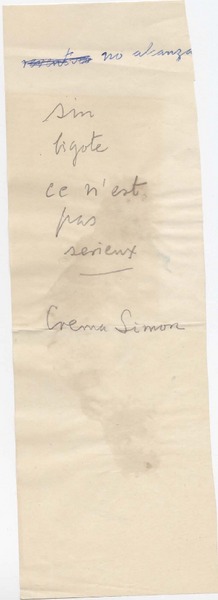 no abanza
sin
bigote
ce n'est
pas
serieux
Crema Simon